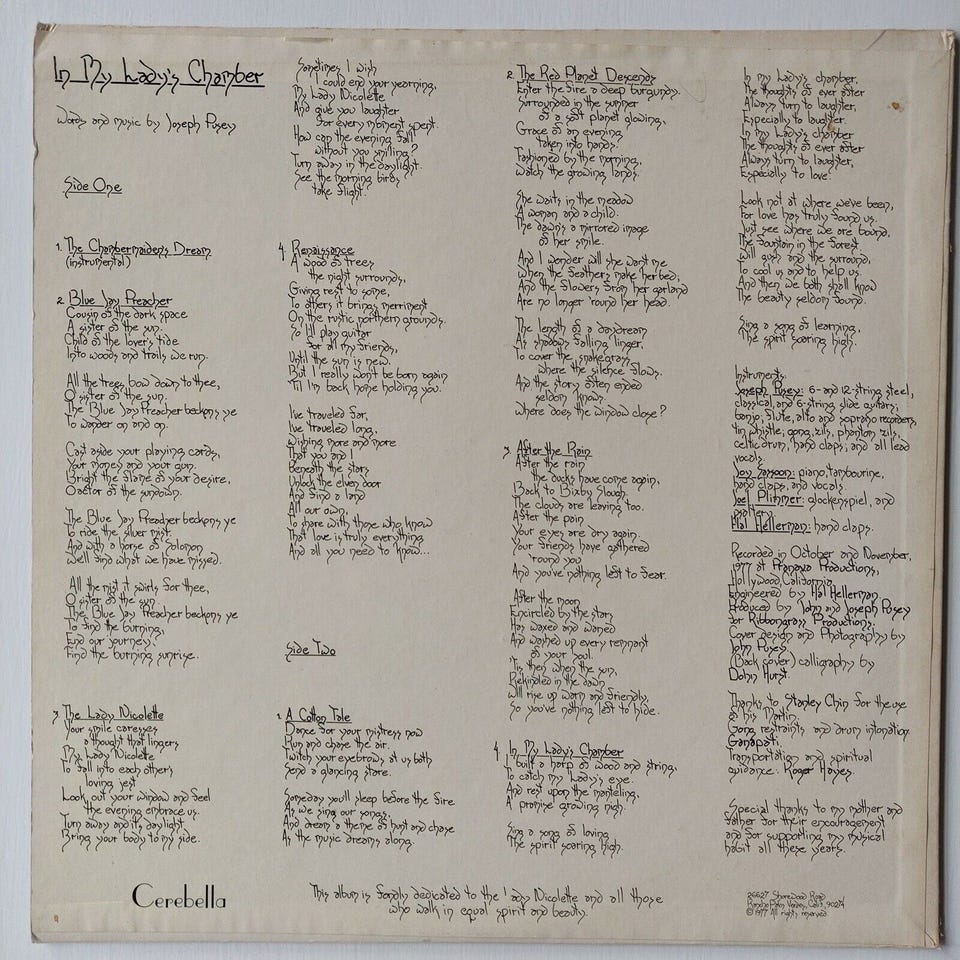 In My Lady's Chamber
Words and music by Joseph Pusey
Side One
1. The Chambermaiden's Dream
(instrumental)
2. Blue Jay Preacher
Cousin of the dark space
A sister of the sun.
Child of the lover's tide
Into woods and trails we run.
All the trees bow down to thee,
O sister of the sun.
The Blue Jay Preacher beckons ye
To wander on and on.
Cast aside your playing cards,
Your money and your gun.
Bright the flame of your desire,
O actor of the sundown.
The Blue Jay Preacher beckons ye
To ride the silver mist.
And with a horse of Solomon
We'll find what we have missed.
All the mist it swirls for thee,
O sister of the sun
The Blue Jay Preacher beckons ye
To find the burning,
End our journey,
Find the burning sunrise.
3. The Lady Nicolette
Your smile caresses
a thought that lingers
My Lady Nicolette
To fall into each other's
loving jest
Look out your window and feel
the evening embrace us.
Turn away and it's daylight
Bring your body to my side.
Sometimes I wish
I could end your yearning,
My Lady Nicolette
And give you laughter
for every moment spent.
How can the evening fall
without you smiling?
Turn away in the daylight.
See the morning birds
take flight.
4. Renaissance
A wood of trees
the night surrounds,
Giving rest to some,
To others it brings merriment
On the rustic northern grounds.
So I'll play guitar
for all my friends,
Until the sun is new.
But I really won't be born again
'Til I'm back home holding you.
I've traveled far,
I've traveled long,
Wishing more and more
That you and I
Beneath the stars
Unlock the elven door
And find a land
All our own,
To share with those who know
That love is truly everything
And all you need to know...
Side Two
1. A Cotton Tale
Dance for your mistress now
Run and chase the air.
Twitch your eyebrows at us both
Send a glancing stare.
Someday you'll sleep before the fire
As we sing our songs,
And dream a theme of hunt and chase
As the music dreams along.
2. The Red Planet Descends
Enter the fire a deep burgundy.
Surrounded in the summer
of a soft planet glowing,
Grace of an evening
taken into hands.
Fashioned by the morning,
Watch the growing lands.
She waits in the meadow
A woman and a child.
The dawn's a mirrored image
of her smile.
And I wonder will she want me
When the feathers make her bed;
And the flowers from her garland
Are no longer 'round her head.
The length of a daydream
As shadows falling linger,
To cover the snakegrass
where the silence flows.
And the story often ended
seldom knows
Where does the window close?
3. After the Rain
After the rain
the ducks have come again,
Back to Bixby Slough.
The clouds are leaving too.
After the pain
Your eyes are dry again.
Your friends have gathered
'round you
And you've nothing left to fear.
After the moon
Encircled by the stars
Has waxed and waned
And washed up every remnant
of your soul.
'Tis then when the sun,
Rekindled in the dawn
Will rise up warm and friendly,
So you've nothing left to hide.
4. In My Lady's Chamber
I built a harp of wood and string,
To catch my Lady's eye.
And rest upon the manteling,
A promise growing nigh.
Sing a song of loving
The spirit soaring high.
In my Lady's chamber,
The thoughts of ever after
Always turn to laughter,
Especially to laughter.
In my Lady's chamber
The thoughts of ever after
Always turn to laughter,
Especially to love.
Look not at where we've been,
For love has truly found us.
Just see where we are bound.
The fountain in the forest
Will gush and the surround,
To cool us and to help us
And then we both shall know
The beauty seldom found.
Sing a song of learning,
The spirit soaring high.
Instruments:
Joseph Pusey: 6- and 12-string steel,
classical, and 6-string slide guitars;
banjo, flute, alto and soprano recorders,
tin whistle, gong, zils, phantom zils,
celtic drum, hand claps, and all lead
vocals.
Jay Sansoon: piano, tambourine,
hand claps, and vocals.
Joel Plimmer: glockenspiel, and
psaltery.
Hal Hellerman: hand claps.
Recorded in October and November,
1977 at Pranava Productions,
Hollywood, California
Engineered by Hal Hellerman.
Produced by John and Joseph Pusey
for Ribbongrass Productions.
Cover design and Photography by
John Pusey.
(Back cover) calligraphy by
Dohn Hurst.
Thanks to Stanley Chin for the use
of his Martin.
Gong restraints and drum intonation:
Ganapati.
Transportation and spiritual
guidance: Roger Hayes.
Special thanks to my mother and
father for their encouragement
and for supporting my musical
habit all these years.
Cerebella
This album is fondly dedicated to the Lady Nicolette and all those
who walk in equal spirit and beauty.
26627 Shorewood Road
Rancho Palos Verdes, Calif. 90274
©1977 All rights reserved